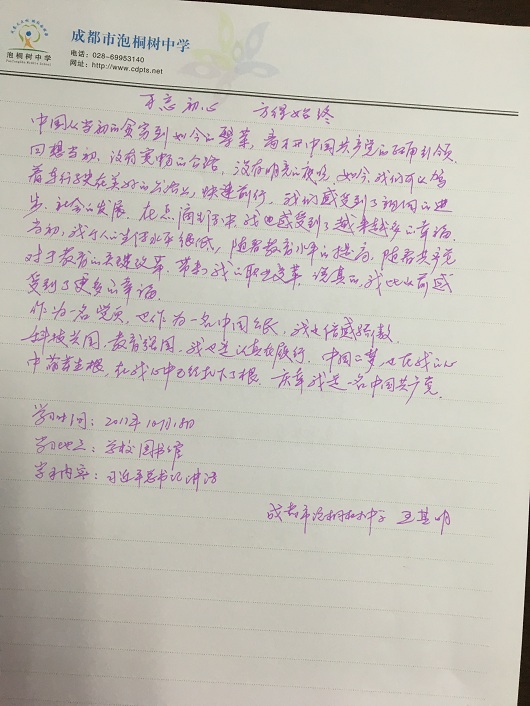 成都市泡桐树中学
泡桐树中学
电话：028-69953140
网址：http://www.cdpts.net
不忘初心 方得始终
中国从当初的贫穷到如今的繁荣，离不开中国共产党的正确引领，
回想当初，没有宽畅的公路，没有明亮的夜空，如今，我们可以驾
着车行驶在美好的公路上，快速前行，我们感受到了祖国的进
步，社会的发展。在点滴生活中，我也感受到了越来越多的幸福。
当初，我个人的生活水平很低，随着教育水平的提高，随着共产党
对于教育的关键改革，带动我的职业变革，说真的，我也从前感
受到了更多的幸福。
作为一名党员，也作为一名中国公民，我也倍感骄傲。
科技兴国，教育强国，我也是认真在履行，中国的梦，也在我的心
中萌芽生根，在我心中已经扎下了根。庆幸我是一名中国共产党。
学习时间：2017年10月18日
学习地点：学校图书馆
学习内容：习近平总书记讲话
成都市泡桐树中学 王其明